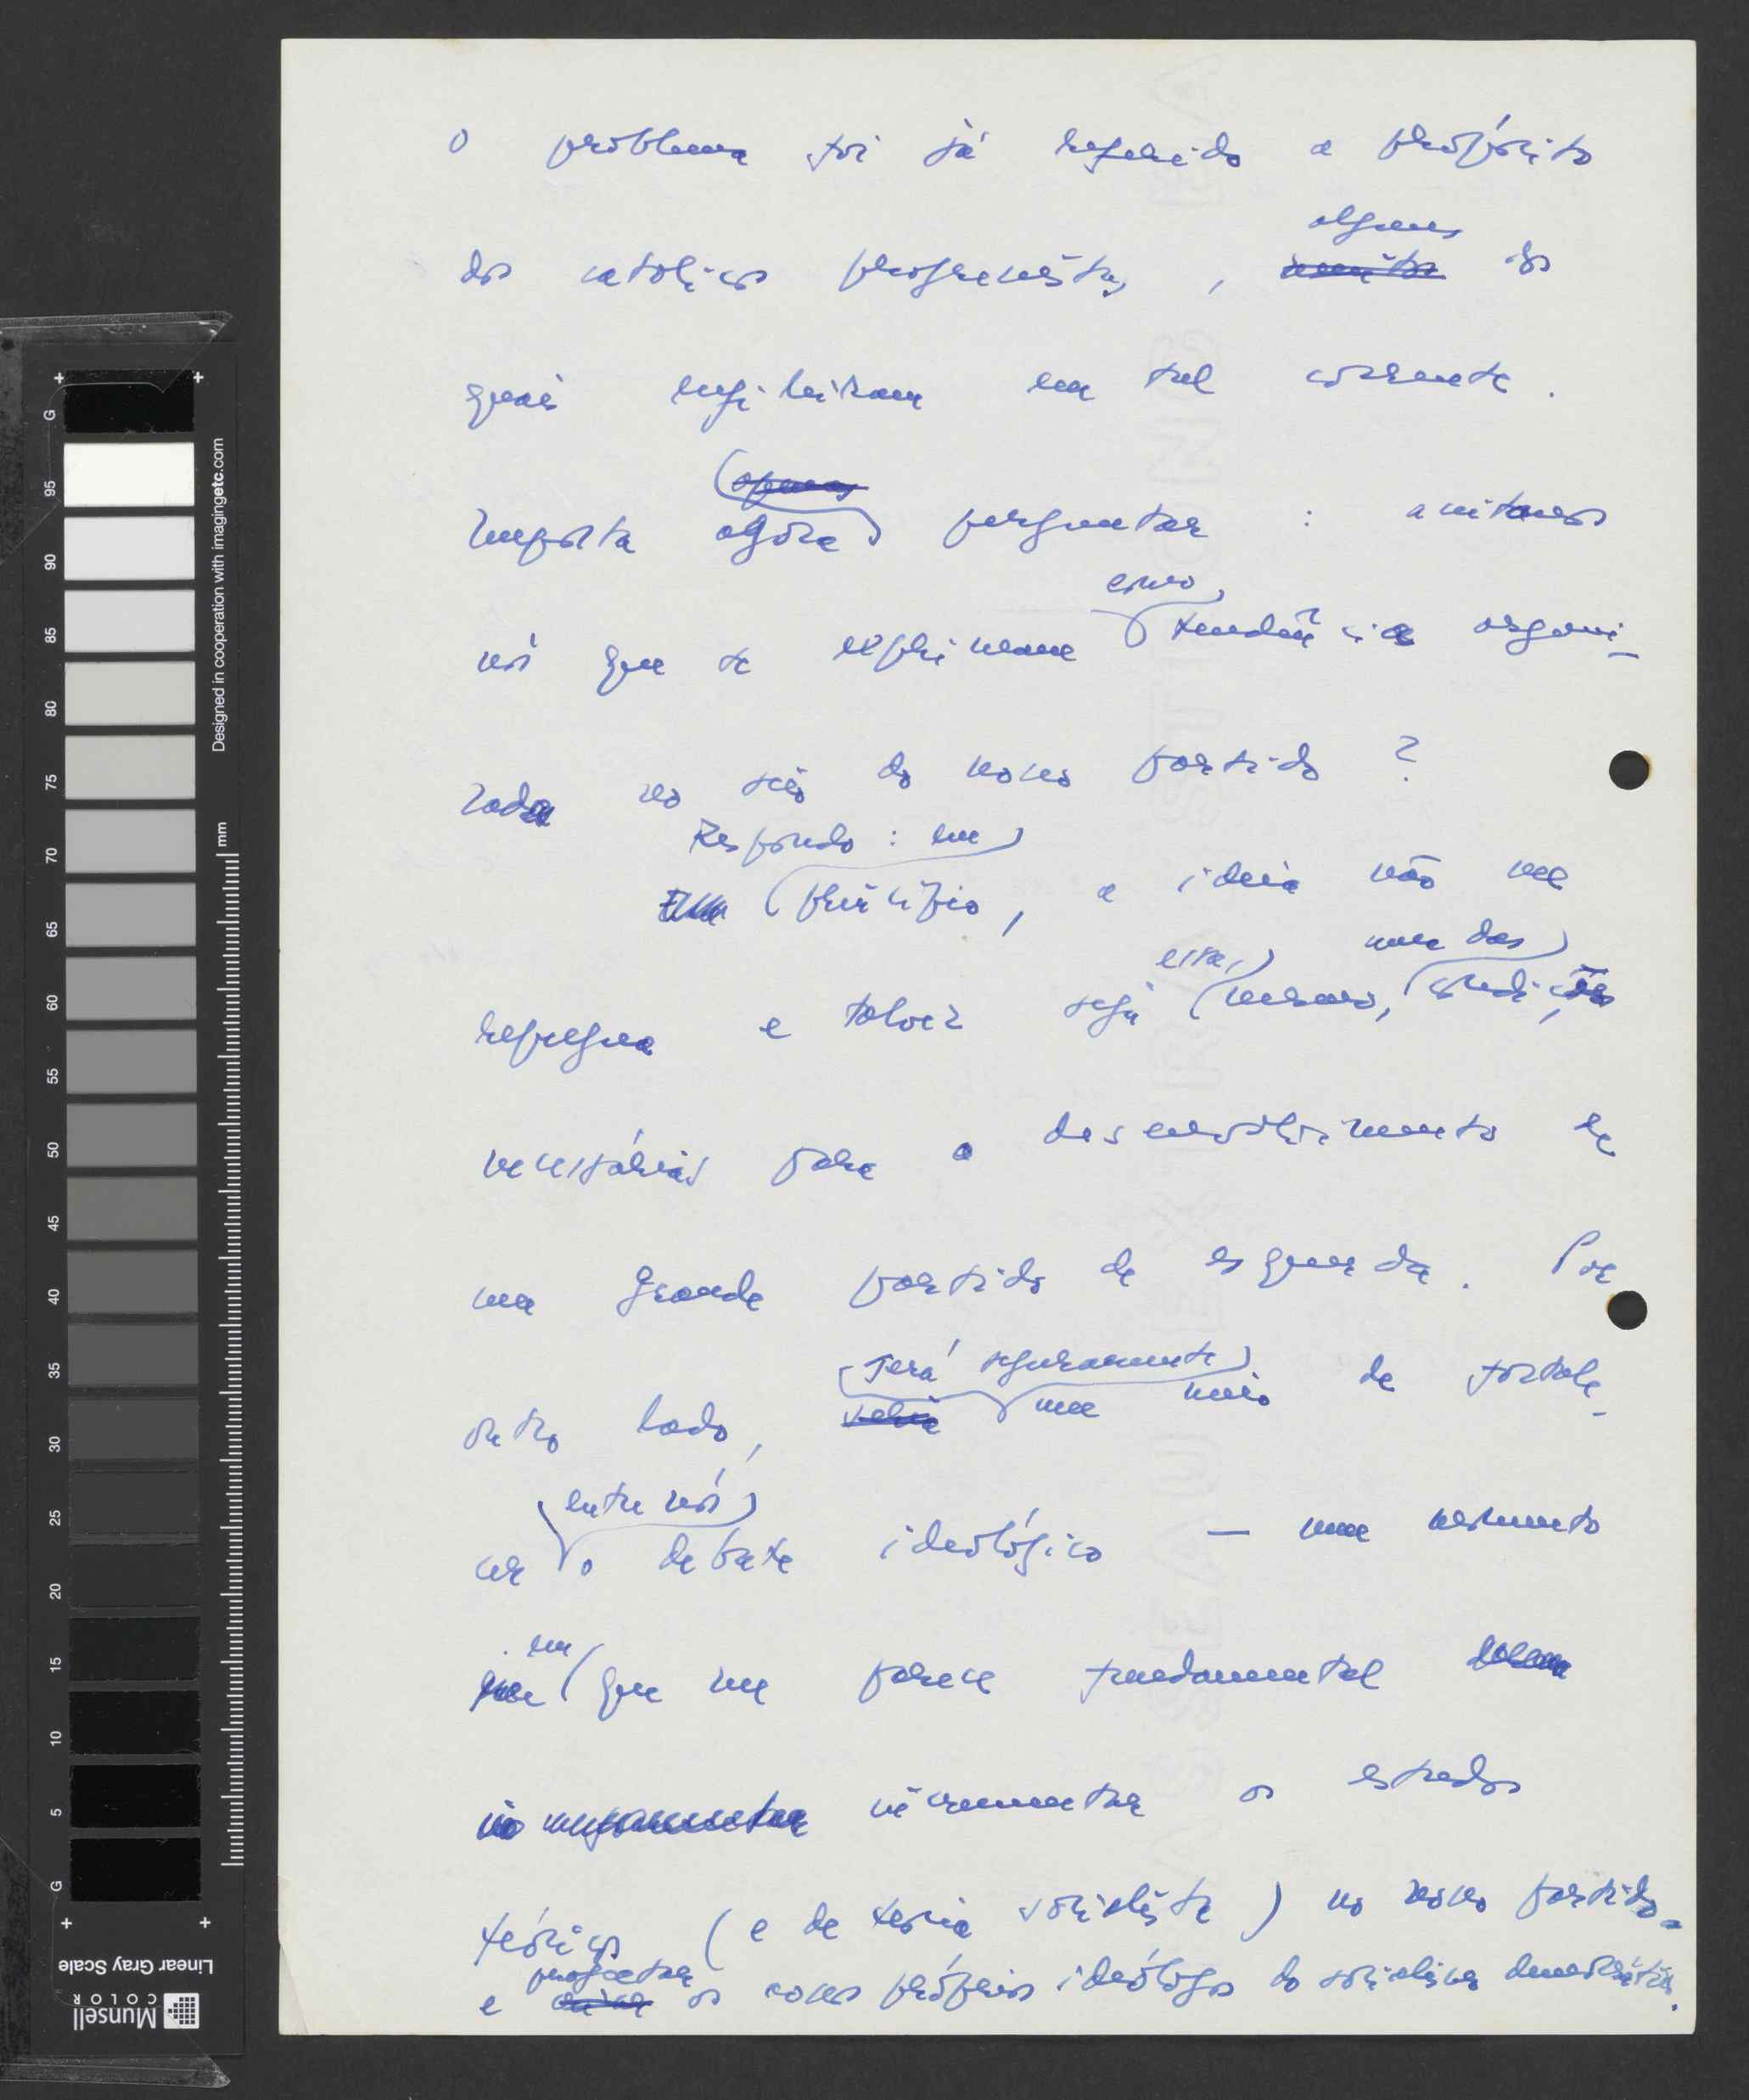 O problema foi já referido a propósito
alguns
dos católicos progressistas, muitos dos
quais militaram em tal corrente.
(apenas
Importa agora perguntar : aceitamos
como,
nós que se exprimam tendência organi-
zada no seio do nosso partido ?
Respondo : em
princípio, a ideia não me
essa, uma das
repugna e talvez seja mesmo, condições
necessárias para o desenvolvimento de
um grande partido de esquerda. Por
Será seguramente
outro lado, seria um meio de fortale-
entre nós
cer o debate ideológico — num momento
em
que me parece fundamental
incrementar os estudos
teóricos (e de teoria socialista) no nosso partido
projectar
e os nossos próprios ideólogos do socialismo democrático.
Designed in cooperation with imagingetc.com
mm
G 95 90 85 80 75 70 65 60 55 50 45 40 35 30 25 20 15 10 5 G
Linear Gray Scale
Munsell
COLOR